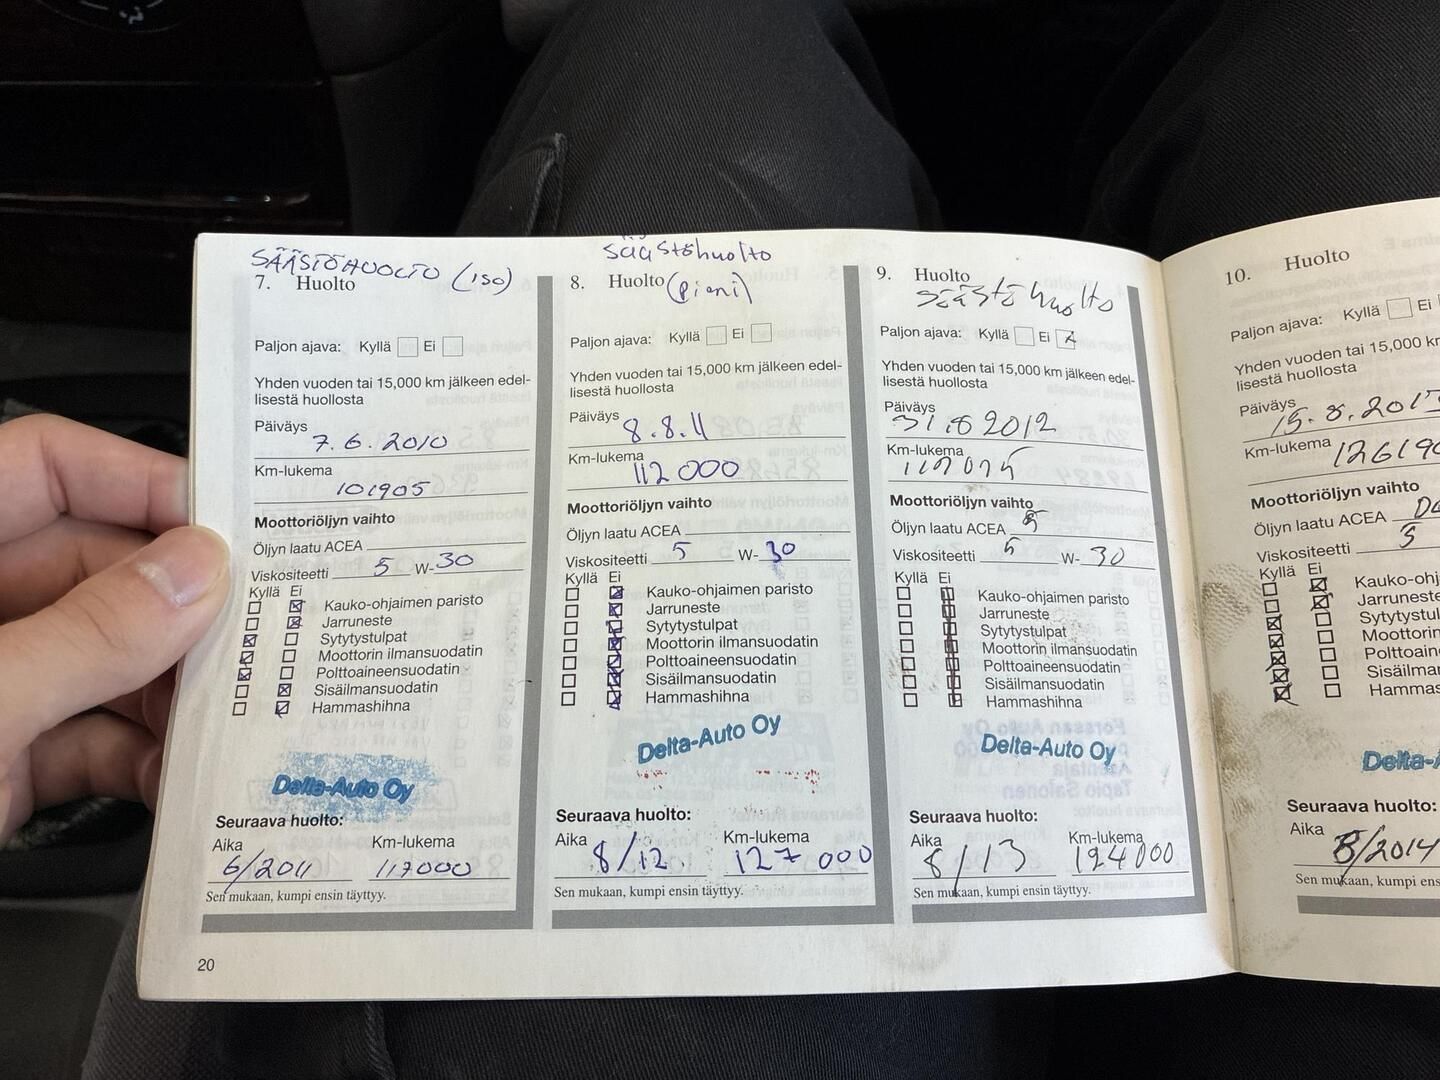 SÄÄSTÖHUOLTO (ISO)
7. Huolto
Paljon ajava: Kyllä Ei
Yhden vuoden tai 15,000 km jälkeen edel-
lisestä huollosta
Päiväys 7.6.2010
Km-lukema
101905
Moottoriöljyn vaihto
Öljyn laatu ACEA
Viskositeetti 5 W-30
Kyllä Ei
Kauko-ohjaimen paristo
Jarruneste
Sytytystulpat
Moottorin ilmansuodatin
Polttoaineensuodatin
Sisäilmansuodatin
Hammashihna
Delta-Auto Oy
Seuraava huolto:
Aika Km-lukema
6/2011 117000
Sen mukaan, kumpi ensin täyttyy.
20
säästöhuolto
8. Huolto (pieni)
Paljon ajava: Kyllä Ei
Yhden vuoden tai 15,000 km jälkeen edel-
lisestä huollosta
Päiväys 8.8.11
Km-lukema
112000
Moottoriöljyn vaihto
Öljyn laatu ACEA
Viskositeetti 5 W-30
Kyllä Ei
Kauko-ohjaimen paristo
Jarruneste
Sytytystulpat
Moottorin ilmansuodatin
Polttoaineensuodatin
Sisäilmansuodatin
Hammashihna
Delta-Auto Oy
Seuraava huolto:
Aika Km-lukema
8/12 127 000
Sen mukaan, kumpi ensin täyttyy.
9. Huolto
säästöhuolto
Paljon ajava: Kyllä Ei x
Yhden vuoden tai 15,000 km jälkeen edel-
lisestä huollosta
Päiväys
31.8 2012
Km-lukema
Moottoriöljyn vaihto
Öljyn laatu ACEA
Viskositeetti 5 W-30
Kyllä Ei
Kauko-ohjaimen paristo
Jarruneste
Sytytystulpat
Moottorin ilmansuodatin
Polttoaineensuodatin
Sisäilmansuodatin
Hammashihna
Delta-Auto Oy
Seuraava huolto:
Aika Km-lukema
8/13 124000
Sen mukaan, kumpi ensin täyttyy.
10. Huolto
Paljon ajava: Kyllä Ei
Yhden vuoden tai 15,000 k
lisestä huollosta
Päiväys
15.8.201
Km-lukema 12619
Moottoriöljyn vaihto
Öljyn laatu ACEA
Viskositeetti 5
Kyllä Ei
Kauko-oh
Jarruneste
Sytytystul
Moottorin
Polttoaine
Sisäilmans
Hammash
Delta-
Seuraava huolto:
Aika
8/2014
Sen mukaan, kumpi ens